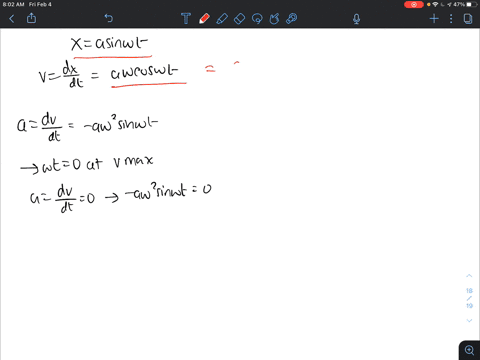 8:02 AM Fri Feb 4
47%
x = asinwt
v = dx/dt = awcoswt =
a = dv/dt = -aw²sinwt
→ wt = 0 at vmax
a = dv/dt = 0 → -aw²sinwt = 0
18
/
19